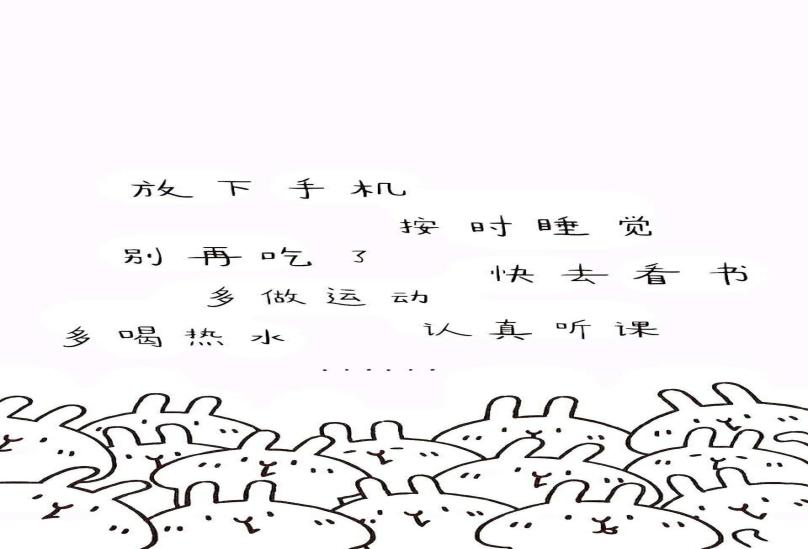 放下手机
按时睡觉
别再吃了
快去看书
多做运动
多喝热水
认真听课
······